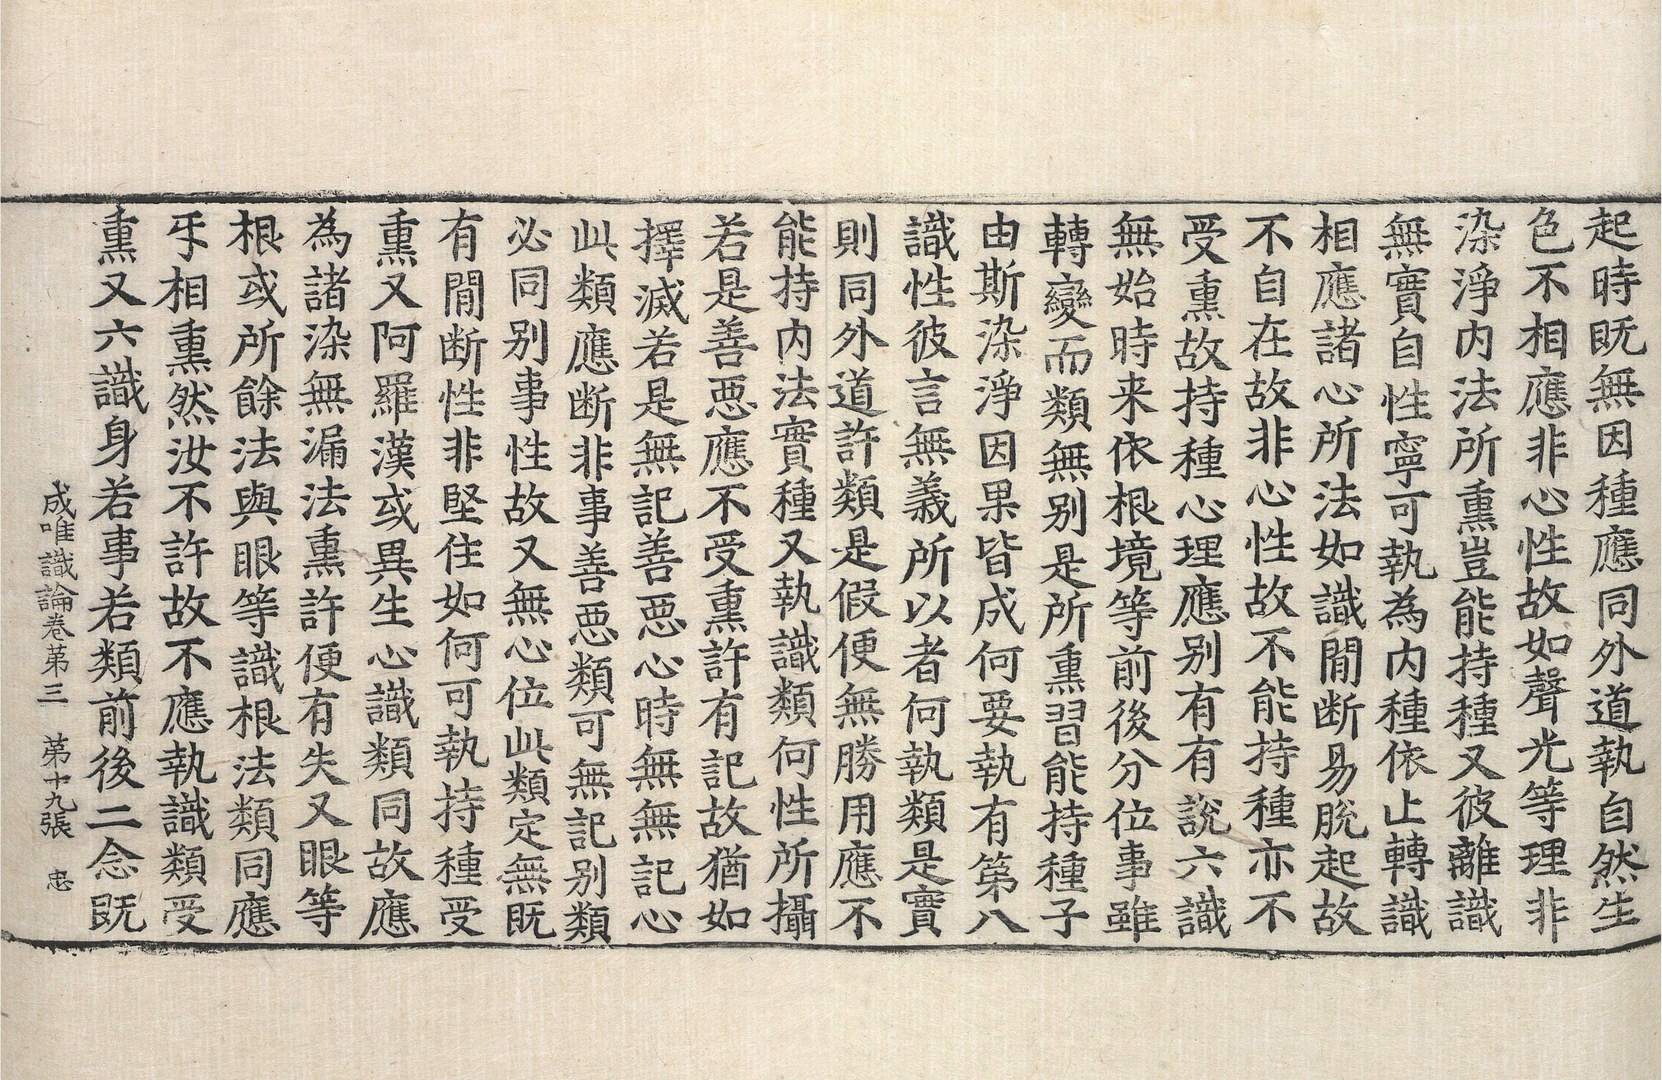 起時既無因種應同外道執自然生
色不相應非心性故如聲光等理非
染淨内法所熏豈能持種又彼離識
無實自性寧可執為内種依止轉識
相應諸心所法如識閒断易脱起故
不自在故非心性故不能持種亦不
受熏故持種心理應别有有説六識
無始時来依根境等前後分位事雖
轉變而類無别是所熏習能持種子
由斯染淨因果皆成何要執有第八
識性彼言無義所以者何執類是實
則同外道許類是假便無勝用應不
能持内法實種又執識類何性所攝
若是善惡應不受熏許有記故猶如
擇滅若是無記善惡心時無無記心
此類應断非事善惡類可無記别類
必同别事性故又無心位此類定無既
有閒断性非堅住如何可執持種受
熏又阿羅漢或異生心識類同故應
為諸染無漏法熏許便有失又眼等
根或所餘法與眼等識根法類同應
互相熏然汝不許故不應執識類受
熏又六識身若事若類前後二念既
成唯識論卷第三 第十九張 忠